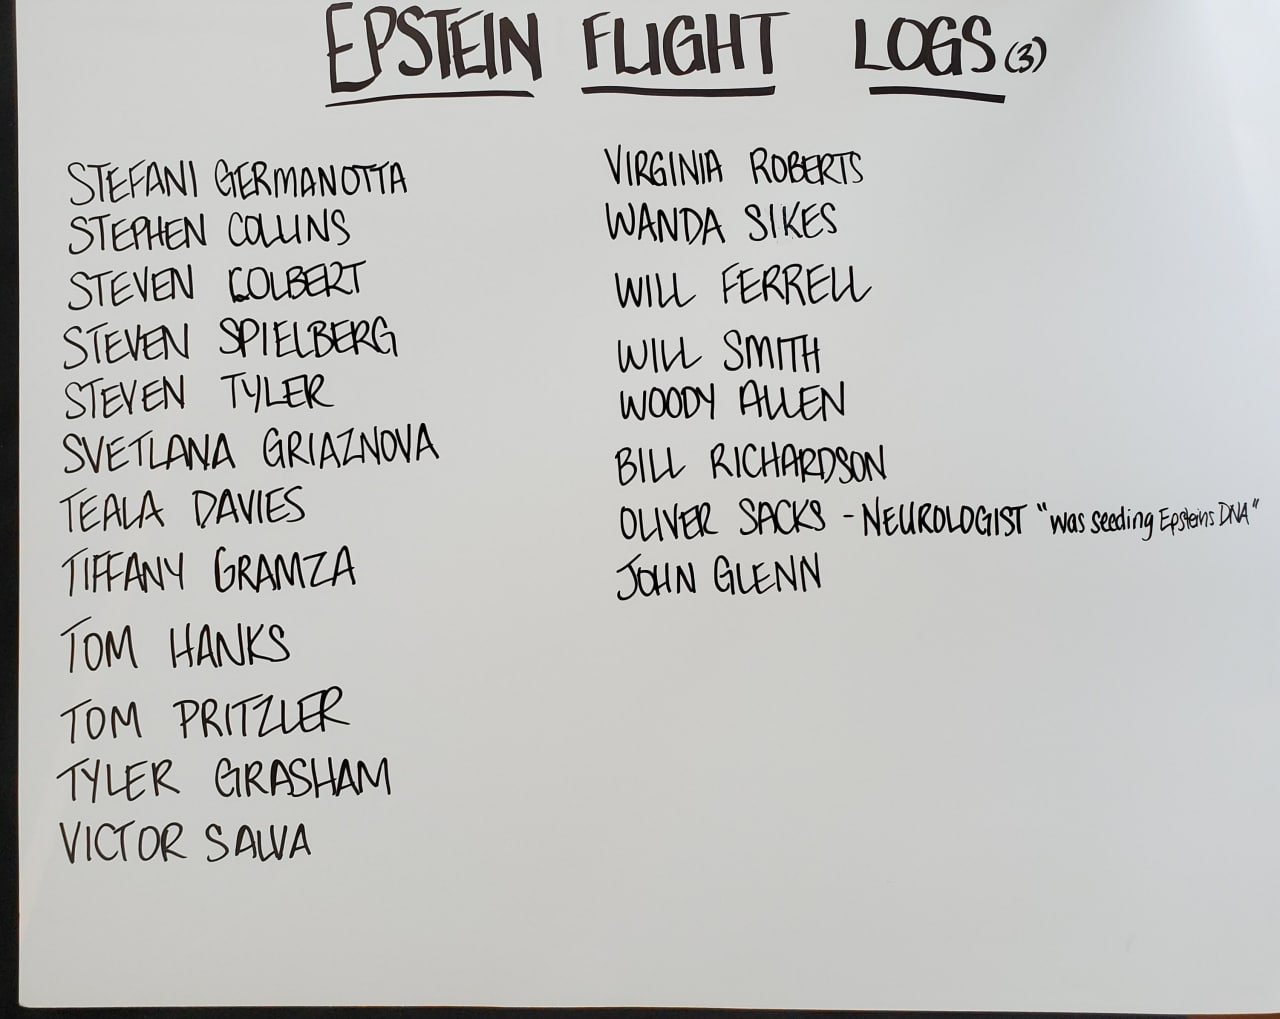 EPSTEIN FLIGHT LOGS (3)
STEFANI GERMANOTTA
STEPHEN COLLINS
STEVEN COLBERT
STEVEN SPIELBERG
STEVEN TYLER
SVETLANA GRIAZNOVA
TEALA DAVIES
TIFFANY GRAMZA
TOM HANKS
TOM PRITZLER
TYLER GRASHAM
VICTOR SALVA
VIRGINIA ROBERTS
WANDA SIKES
WILL FERRELL
WILL SMITH
WOODY ALLEN
BILL RICHARDSON
OLIVER SACKS - NEUROLOGIST "was seeding Epsteins DNA"
JOHN GLENN